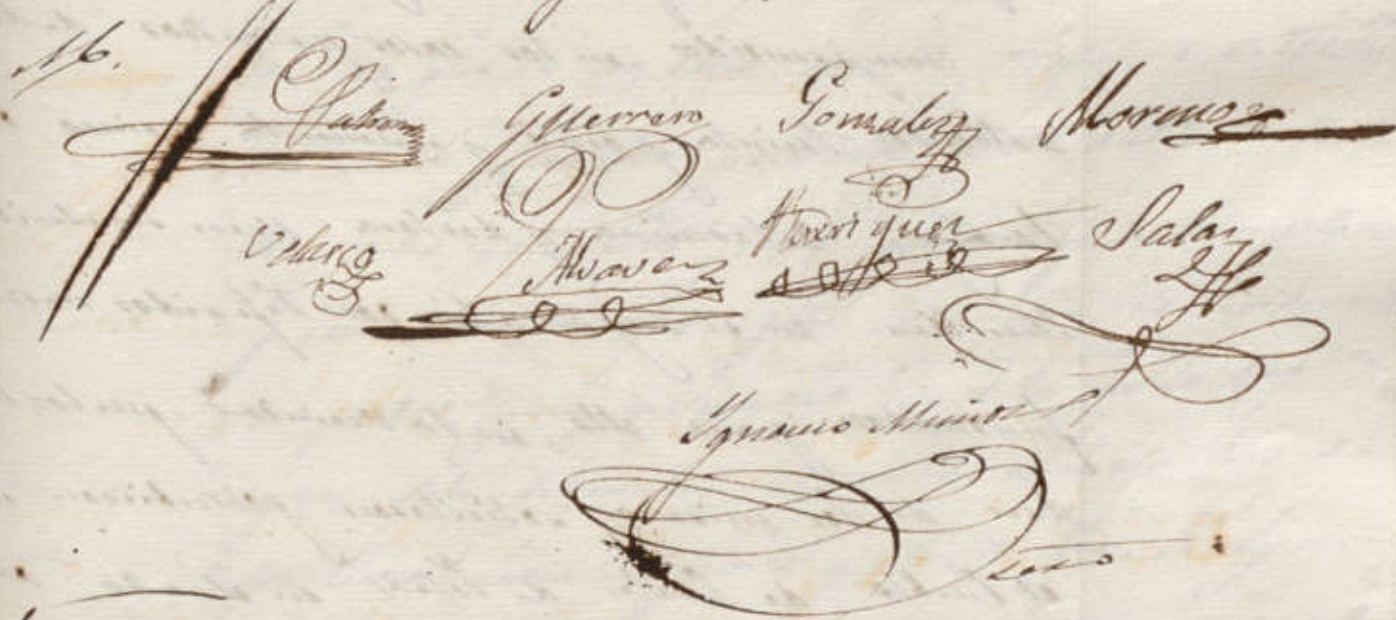 16.
Guerrero Gonzalez Moreno
Velasco Alvarez Henriquez Salaz
Ignacio Muñoz